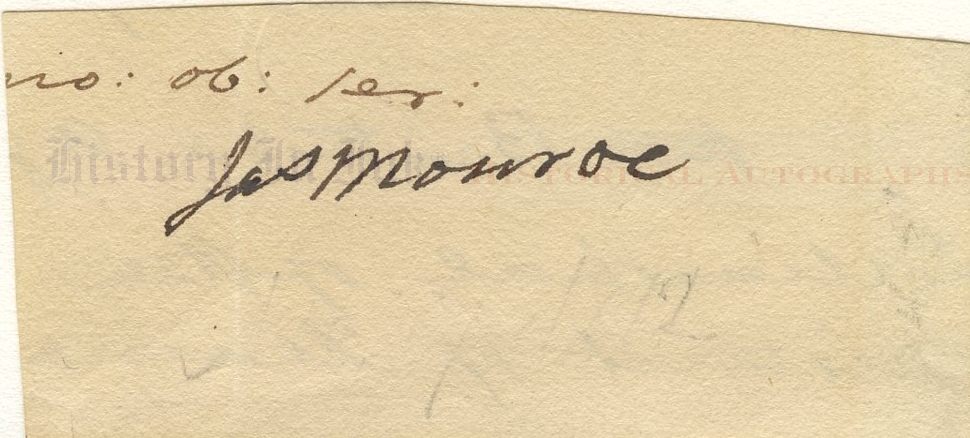 no: ob: ser:
JasMonroe
History In Ink
HISTORICAL AUTOGRAPHS